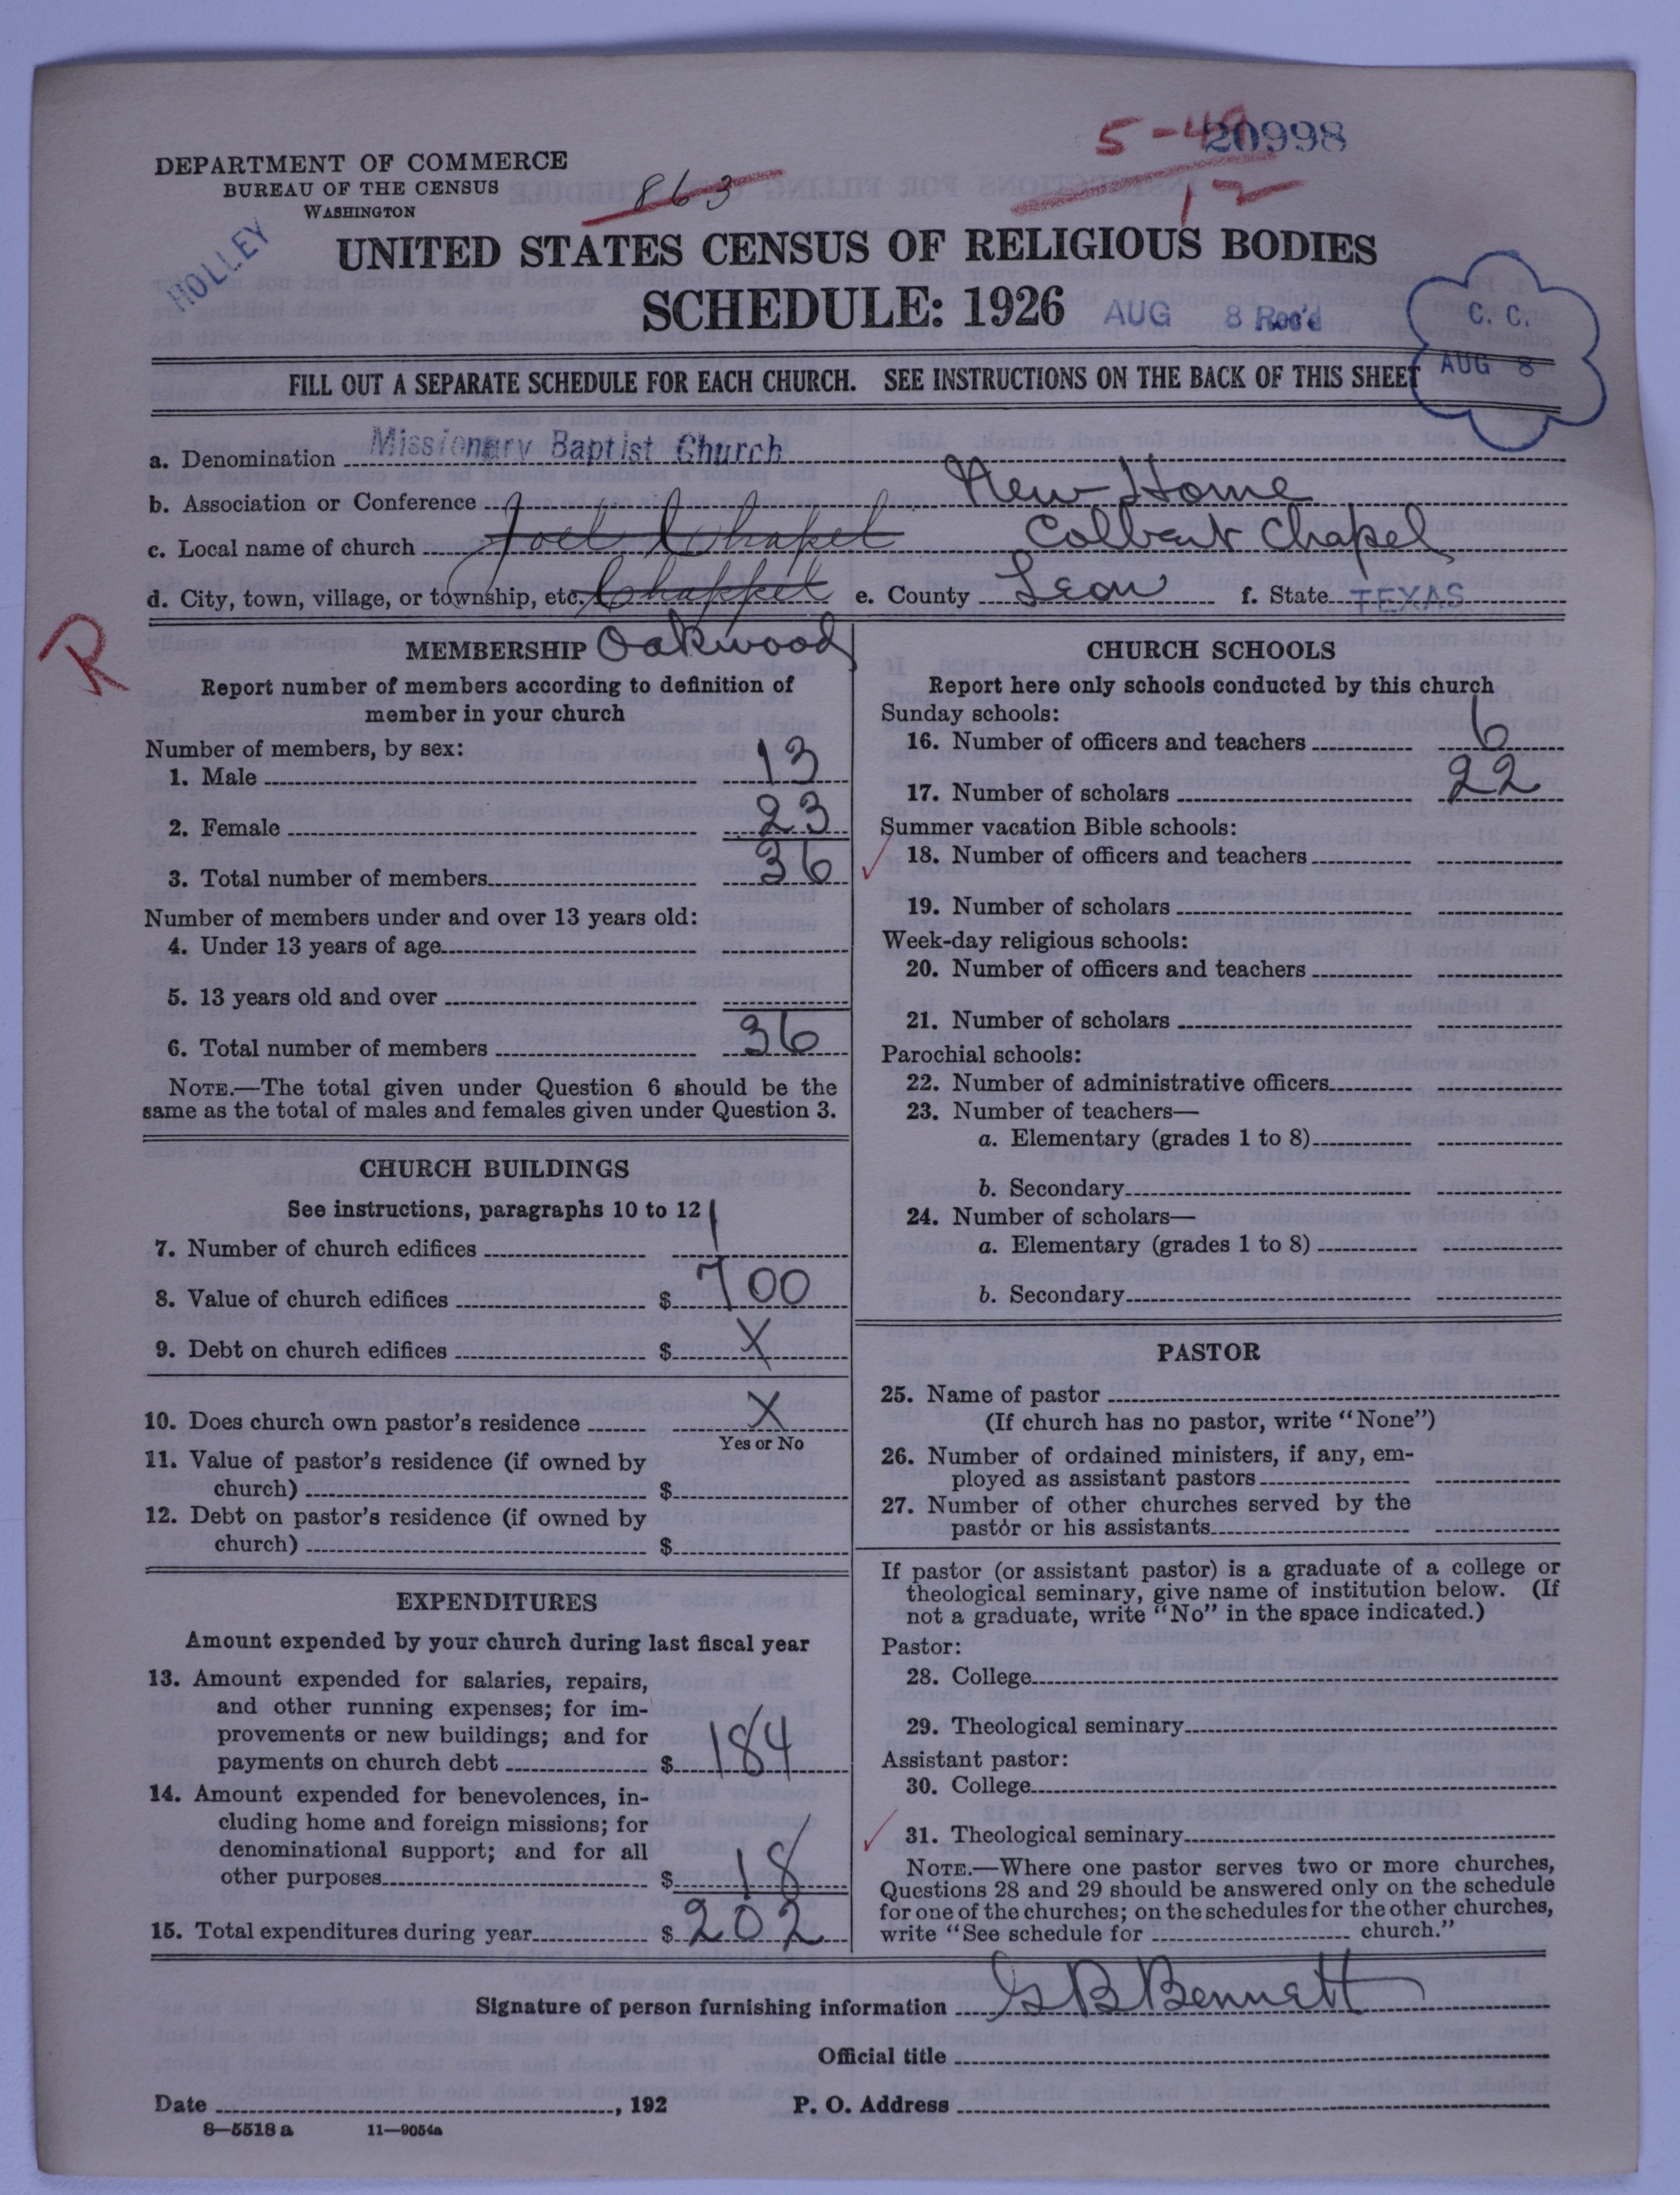 5-49
20998
DEPARTMENT OF COMMERCE
BUREAU OF THE CENSUS
WASHINGTON
863
12
HOLLEY
UNITED STATES CENSUS OF RELIGIOUS BODIES
SCHEDULE: 1926
AUG 8 Rec'd
C. C.
AUG 8
FILL OUT A SEPARATE SCHEDULE FOR EACH CHURCH. SEE INSTRUCTIONS ON THE BACK OF THIS SHEET
a. Denomination Missionary Baptist Church
b. Association or Conference New Home
c. Local name of church Joel Chapel Colbert Chapel
d. City, town, village, or township, etc. Chappel e. County Leon f. State TEXAS
Oakwood
R
MEMBERSHIP
Report number of members according to definition of
member in your church
Number of members, by sex:
1. Male 13
2. Female 23
3. Total number of members 36
Number of members under and over 13 years old:
4. Under 13 years of age
5. 13 years old and over
6. Total number of members 36
NOTE.—The total given under Question 6 should be the
same as the total of males and females given under Question 3.
CHURCH BUILDINGS
See instructions, paragraphs 10 to 12
7. Number of church edifices 1
8. Value of church edifices $ 700
9. Debt on church edifices $ X
10. Does church own pastor's residence X
Yes or No
11. Value of pastor's residence (if owned by
church) $
12. Debt on pastor's residence (if owned by
church) $
EXPENDITURES
Amount expended by your church during last fiscal year
13. Amount expended for salaries, repairs,
and other running expenses; for im-
provements or new buildings; and for
payments on church debt $ 184
14. Amount expended for benevolences, in-
cluding home and foreign missions; for
denominational support; and for all
other purposes $ 18
15. Total expenditures during year $ 202
CHURCH SCHOOLS
Report here only schools conducted by this church
Sunday schools:
16. Number of officers and teachers 6
17. Number of scholars 22
Summer vacation Bible schools:
18. Number of officers and teachers
19. Number of scholars
Week-day religious schools:
20. Number of officers and teachers
21. Number of scholars
Parochial schools:
22. Number of administrative officers
23. Number of teachers—
a. Elementary (grades 1 to 8)
b. Secondary
24. Number of scholars—
a. Elementary (grades 1 to 8)
b. Secondary
PASTOR
25. Name of pastor
(If church has no pastor, write "None")
26. Number of ordained ministers, if any, em-
ployed as assistant pastors
27. Number of other churches served by the
pastor or his assistants
If pastor (or assistant pastor) is a graduate of a college or
theological seminary, give name of institution below. (If
not a graduate, write "No" in the space indicated.)
Pastor:
28. College
29. Theological seminary
Assistant pastor:
30. College
31. Theological seminary
NOTE.—Where one pastor serves two or more churches,
Questions 28 and 29 should be answered only on the schedule
for one of the churches; on the schedules for the other churches,
write "See schedule for church."
Signature of person furnishing information G B Bennett
Official title
Date , 192 P. O. Address
8—5518 a 11—9054a